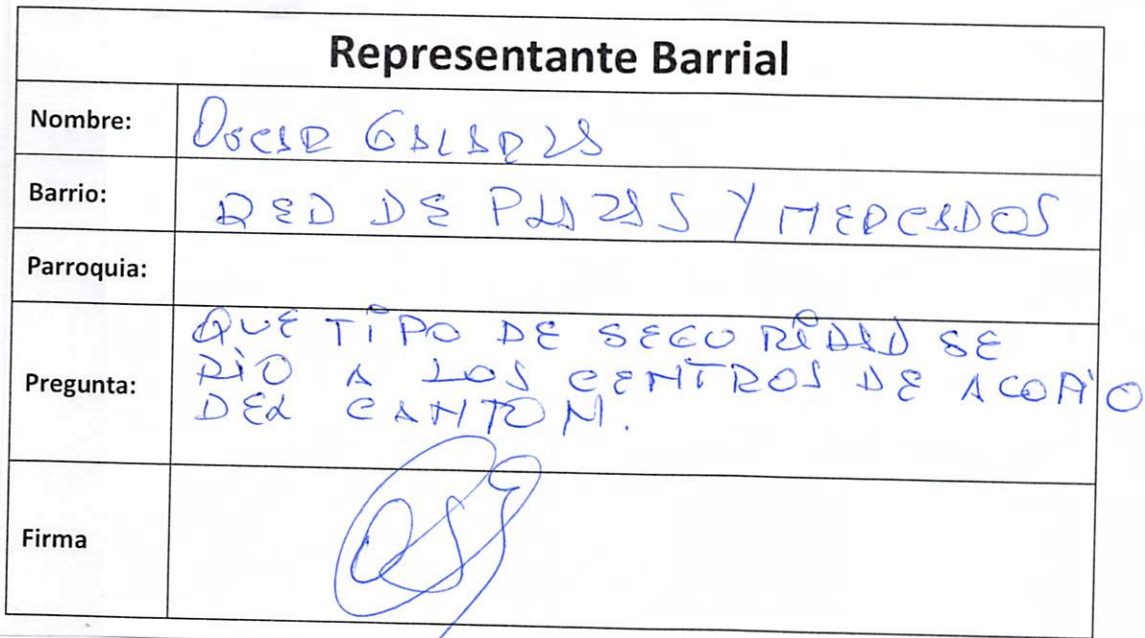 Representante Barrial
Nombre: OSCAR GALARZA
Barrio: RED DE PLAZAS Y MERCADOS
Parroquia:
Pregunta: QUE TIPO DE SEGURIDAD SE
DIO A LOS CENTROS DE ACOPIO
DEL CANTON.
Firma